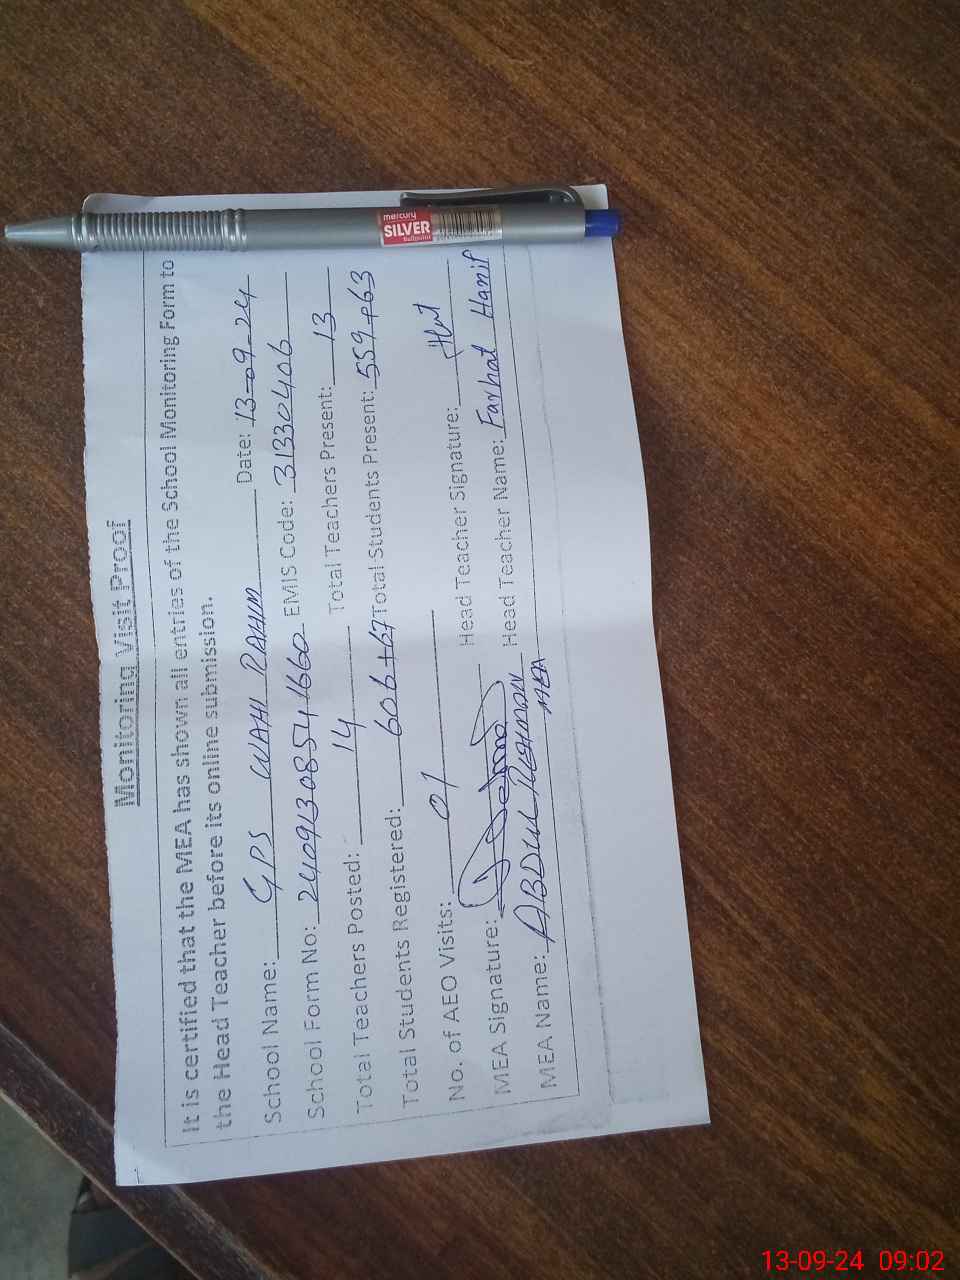 Monitoring Visit Proof
It is certified that the MEA has shown all entries of the School Monitoring Form to
the Head Teacher before its online submission.
School Name: GPS WAHI RAHIM Date: 13-09-24
School Form No: 24091308541660 EMIS Code: 31330406
Total Teachers Posted: 14 Total Teachers Present: 13
Total Students Registered: 606+67 Total Students Present: 559+63
No. of AEO Visits: 01
MEA Signature: Head Teacher Signature:
MEA Name: ABDUL REHMAN Head Teacher Name: Farhat Hanif
MEA
mercury
SILVER
Ballpoint
13-09-24 09:02